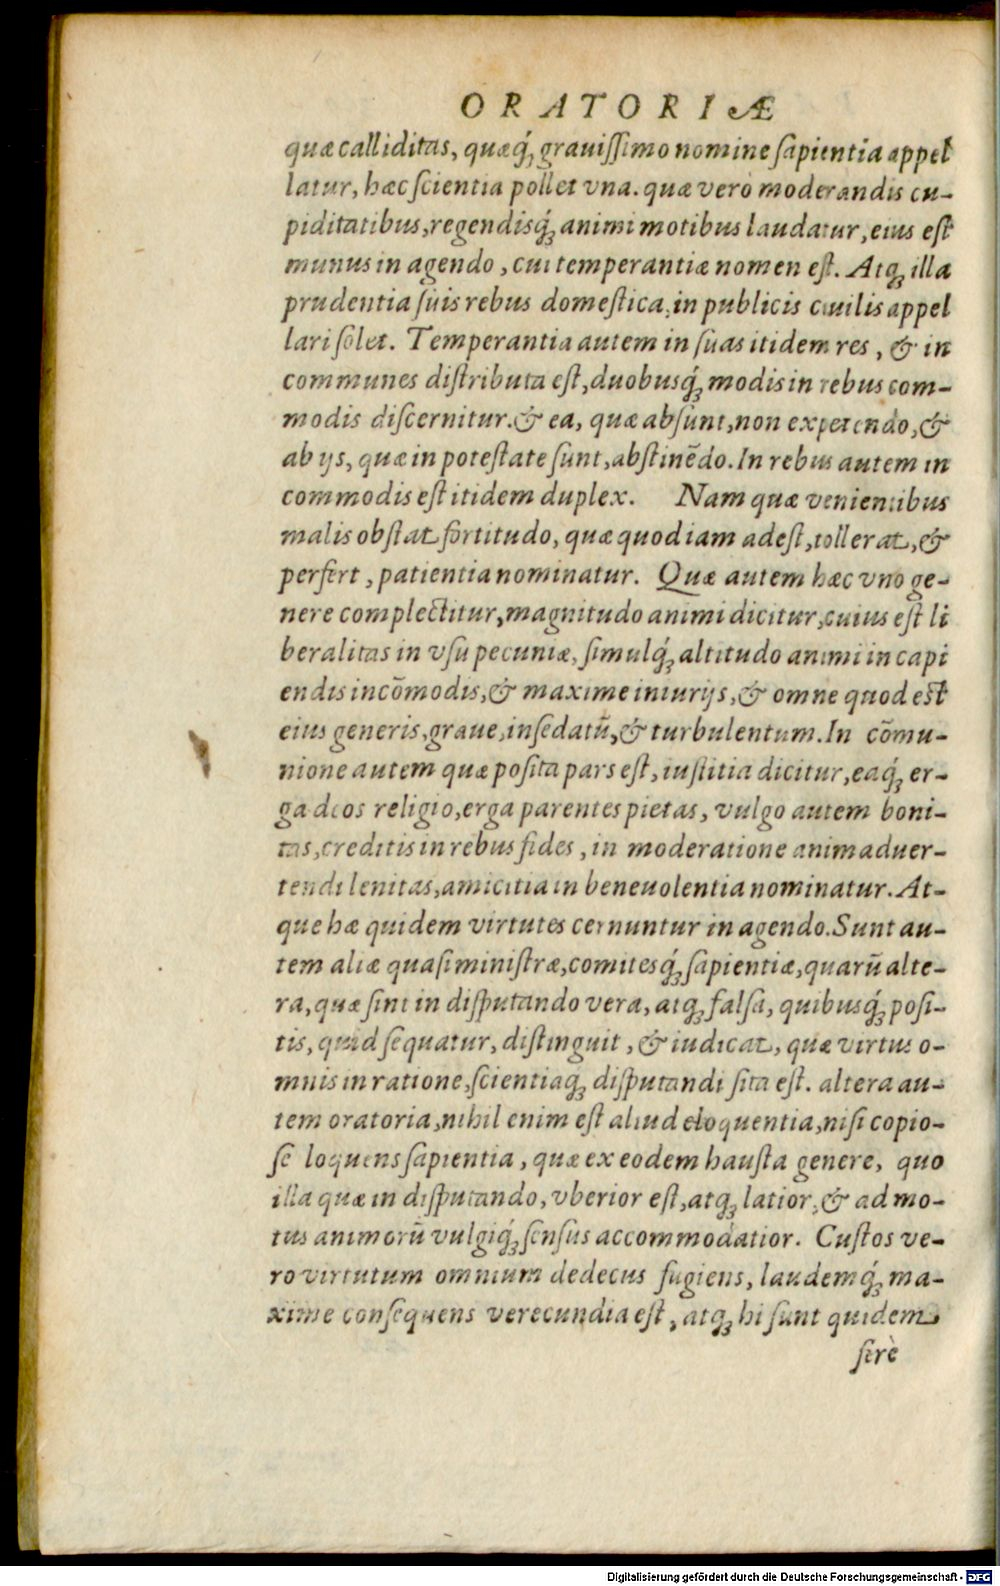 ORATORIÆ
quæ calliditas, quæq́; grauiſſimo nomine ſapientia appel
latur, hæc ſcientia pollet vna. quæ vero moderandis cu-
piditatibus, regendisq́; animi motibus laudatur, eius eſt
munus in agendo, cui temperantiæ nomen eſt. Atq; illa
prudentia ſuis rebus domeſtica, in publicis ciuilis appel
lari ſolet. Temperantia autem in ſuas itidem res, & in
communes diſtributa eſt, duobusq́; modis in rebus com-
modis diſcernitur. & ea, quæ abſunt, non expetendo, &
ab ijs, quæ in poteſtate ſunt, abſtinēdo. In rebus autem in
commodis eſt itidem duplex. Nam quæ venientibus
malis obſtat fortitudo, quæ quod iam adeſt, tollerat, &
perfert, patientia nominatur. Quæ autem hæc vno ge-
nere complectitur, magnitudo animi dicitur, cuius eſt li
beralitas in vſu pecuniæ, ſimulq́; altitudo animi in capi
endis incōmodis, & maxime iniurijs, & omne quod eſt
eius generis, graue, inſedatū, & turbulentum. In cōmu-
nione autem quæ poſita pars eſt, iuſtitia dicitur, eaq́; er-
ga deos religio, erga parentes pietas, vulgo autem boni-
tas, creditis in rebus fides, in moderatione animaduer-
tendi lenitas, amicitia in beneuolentia nominatur. At-
que hæ quidem virtutes cernuntur in agendo. Sunt au-
tem aliæ quaſi miniſtræ, comitesq́; ſapientiæ, quarū alte-
ra, quæ ſint in diſputando vera, atq; falſa, quibusq́; poſi-
tis, quid ſequatur, diſtinguit, & iudicat, quæ virtus o-
mnis in ratione, ſcientiaq́; diſputandi ſita eſt. altera au-
tem oratoria, nihil enim eſt aliud eloquentia, niſi copio-
ſe loquens ſapientia, quæ ex eodem hauſta genere, quo
illa quæ in diſputando, vberior eſt, atq; latior, & ad mo-
tus animorū vulgiq́; ſenſus accommodatior. Cuſtos ve-
ro virtutum omnium dedecus fugiens, laudemq́; ma-
xime conſequens verecundia eſt, atq; hi ſunt quidem
ferè
Digitalisierung gefördert durch die Deutsche Forschungsgemeinschaft - DFG